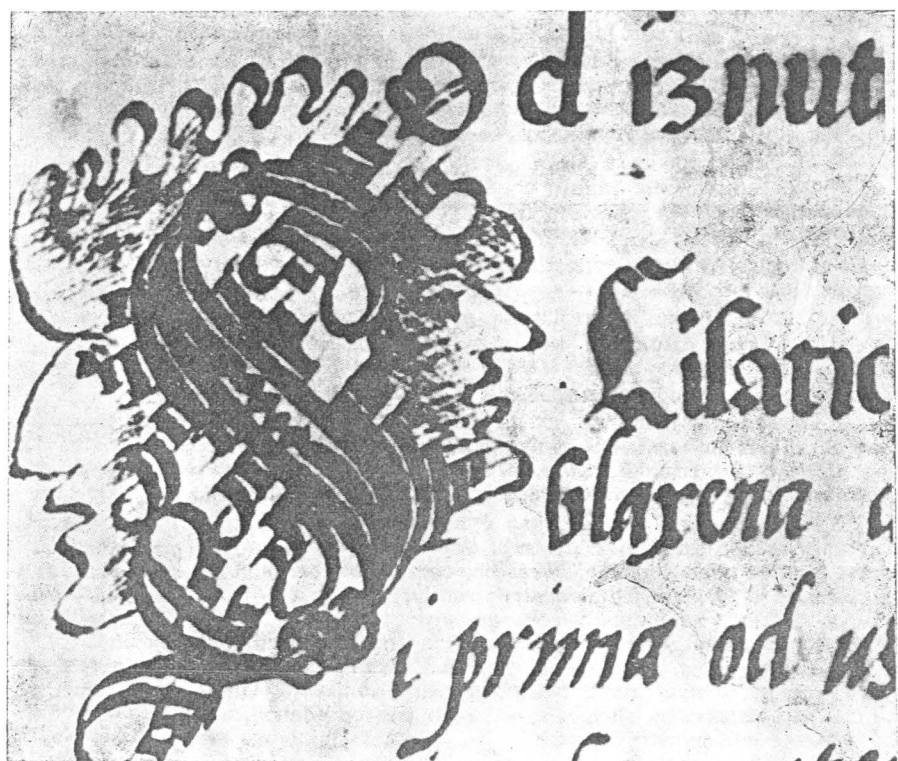 od iznut
Liſatic
blaxena
i prima od us